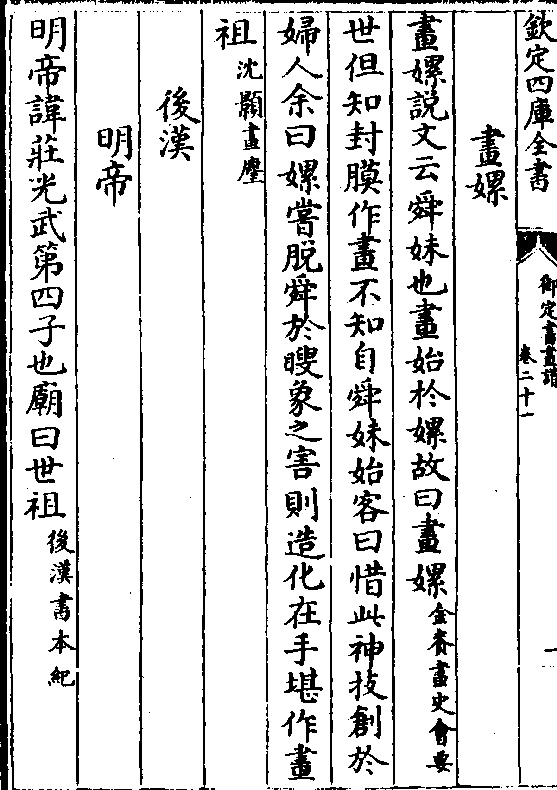 欽定四庫全書
御定書畫譜
卷二十一
一
畫嫘
畫嫘說文云舜妹也畫始於嫘故曰畫嫘金賚畫史會要
世但知封膜作畫不知自舜妹始客曰惜此神技創於
婦人余曰嫘嘗脱舜於瞍象之害則造化在手堪作畫
祖沈顥畫麈
後漢
明帝
明帝諱莊光武第四子也廟曰世祖後漢書本紀